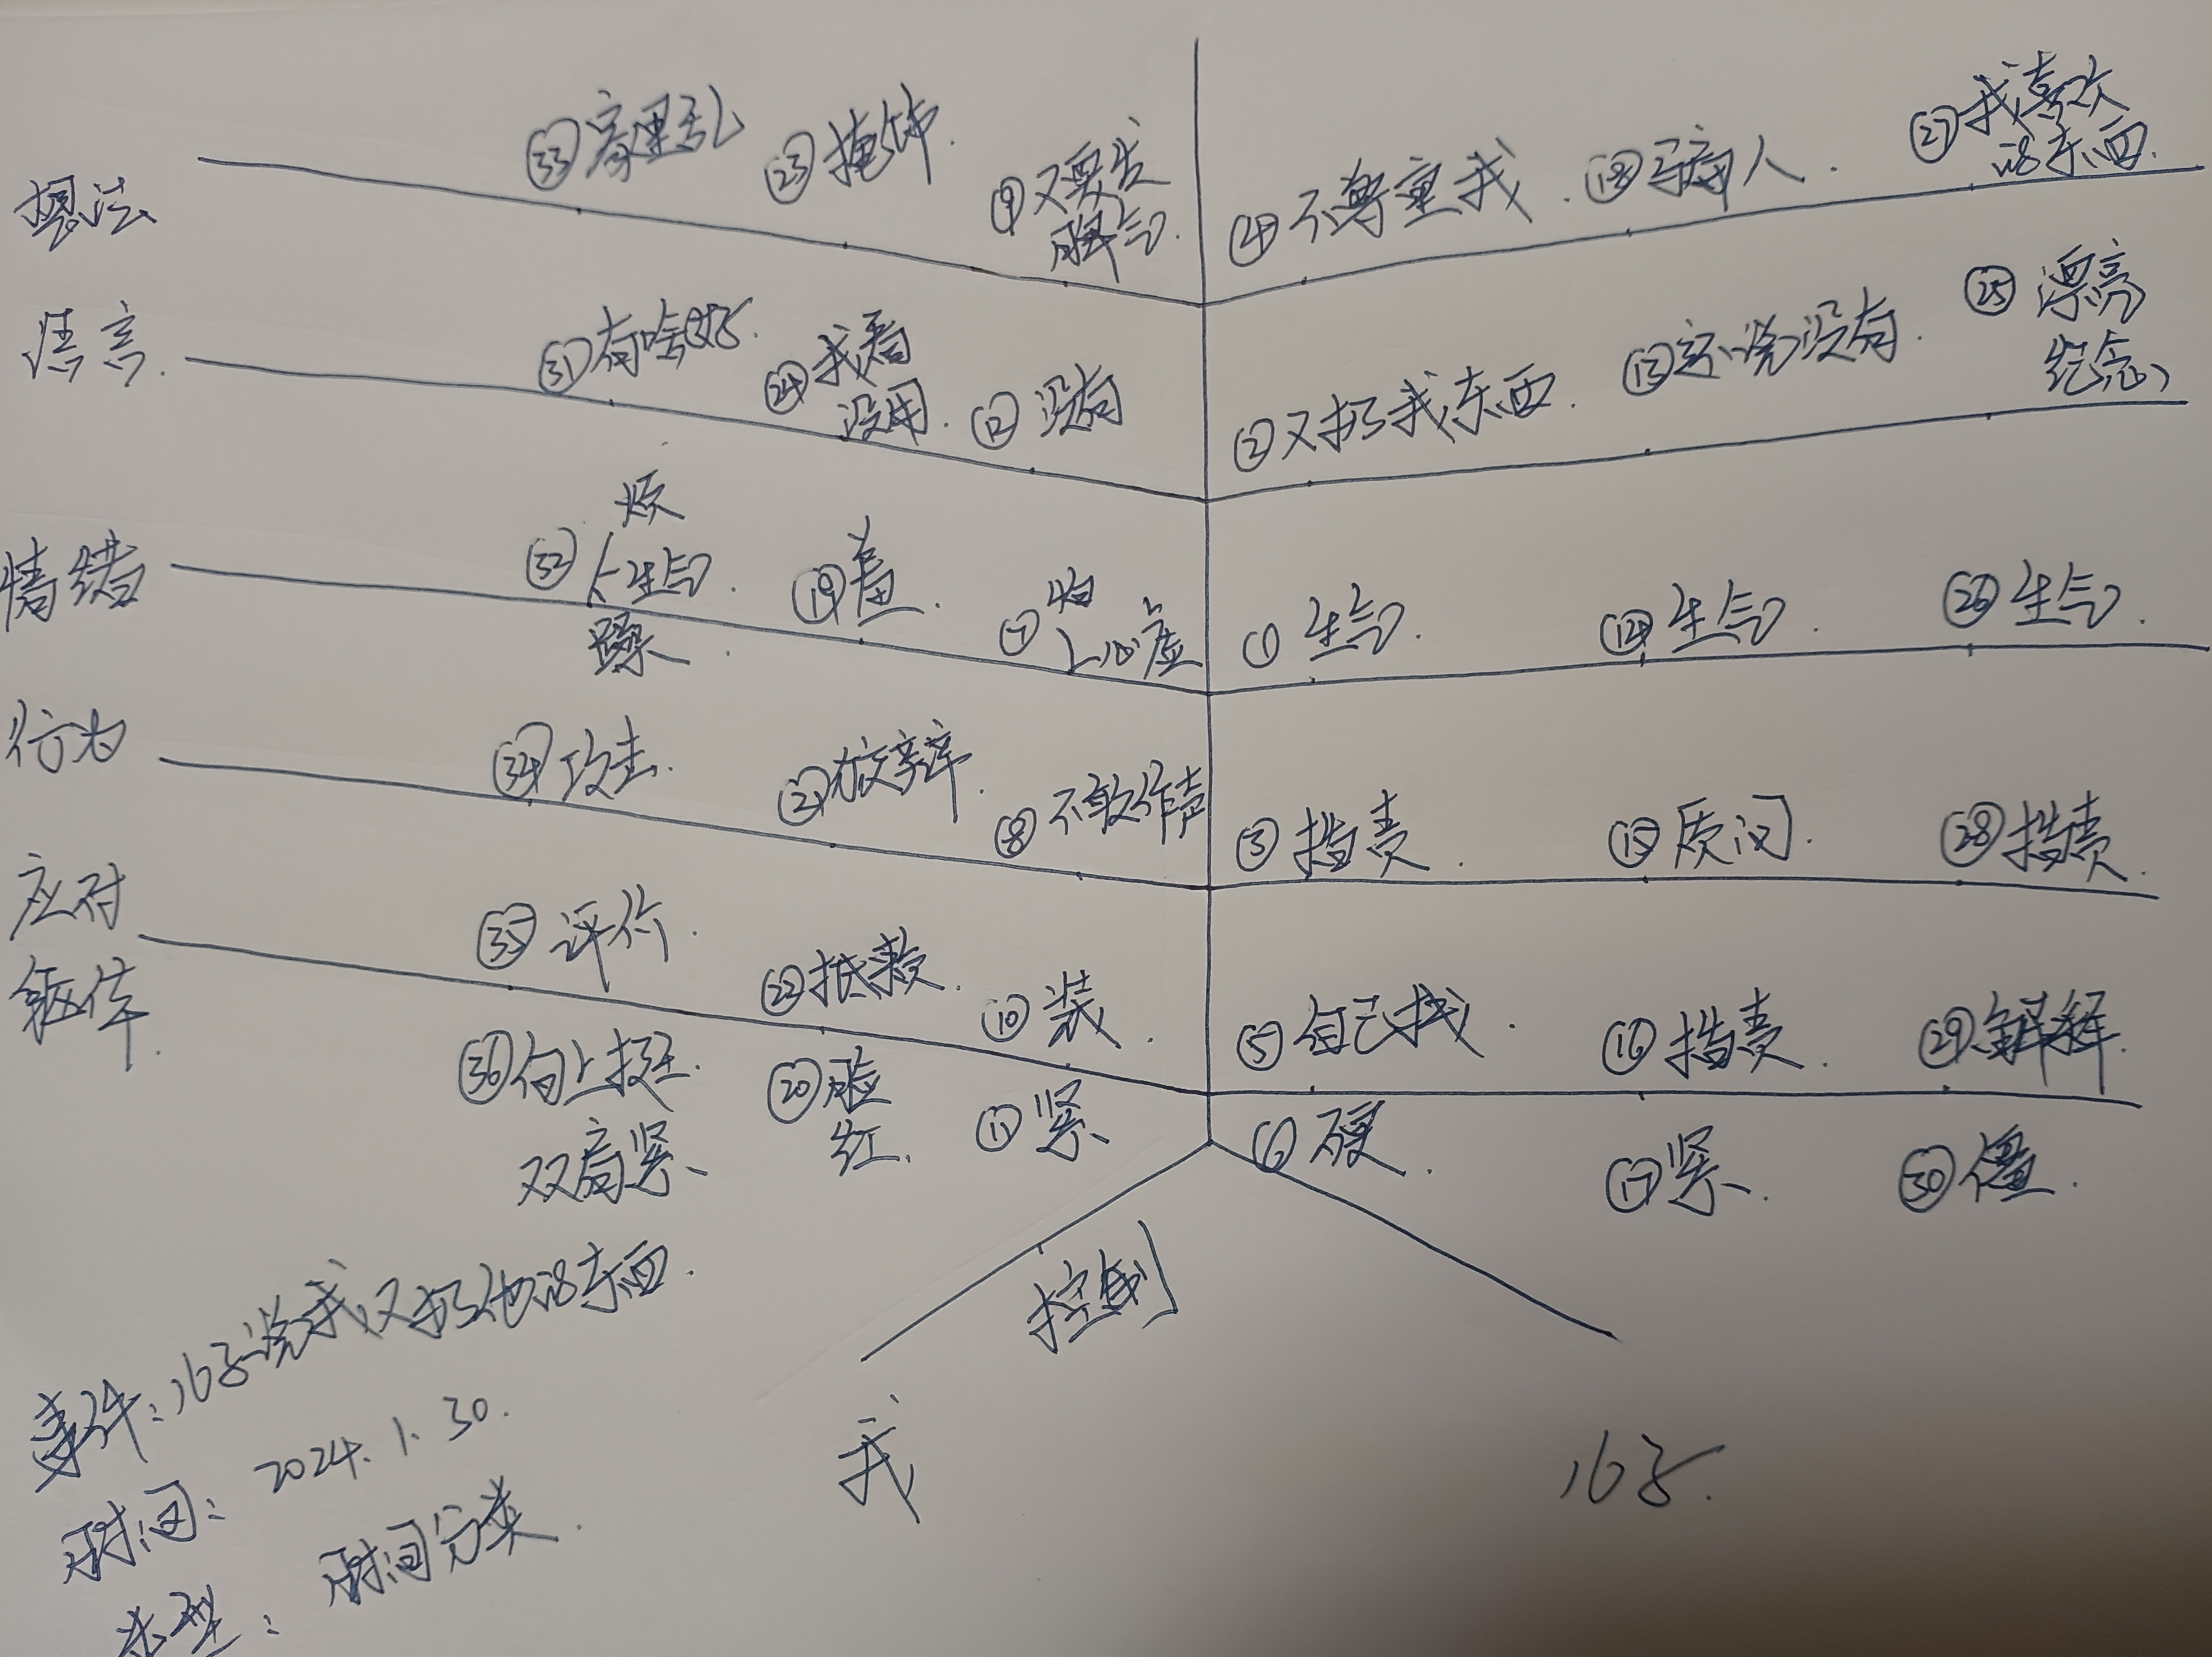 想法
㉝家里乱
㉓掩饰.
⑨又要发
脾气.
④不尊重我.
⑱骗人.
㉗我喜欢
的东西.
语言.
㉛有啥好.
㉔我看
没用.
⑫没有
②又扔我东西.
⑬还说没有.
㉕漂亮
纪念
情绪
烦
㉜生气.
躁.
⑲羞.
⑦怕
心虚
①生气.
⑭生气.
㉖生气.
行为
㉞攻击.
㉑狡辩.
⑧不敢作声
③指责.
⑮质问.
㉘指责.
应对
㉟评价.
㉒抵赖.
⑩装.
⑤自己找.
⑯指责.
㉙解释.
躯体.
㊱向上挺.
双肩紧、
⑳脸
红.
⑪紧
⑥硬.
⑰紧.
㉚僵.
控制
我
事件:说我又扔他的东西.
时间: 2024.1.30.
类型: 时间分类.